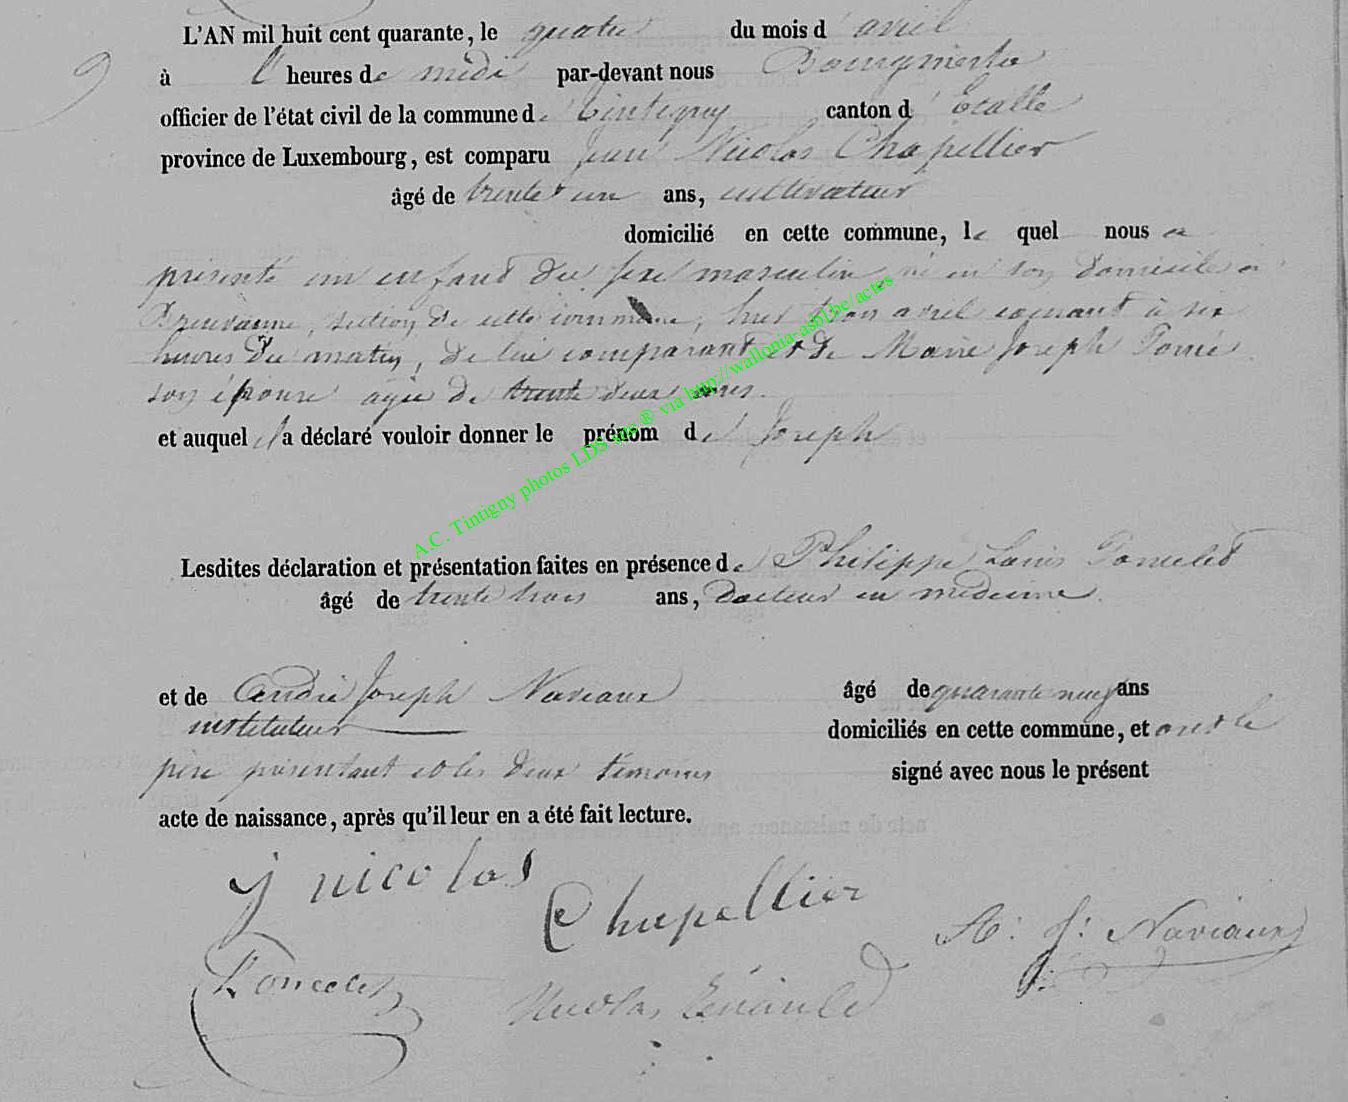 9
L'AN mil huit cent quarante, le quatre du mois d'avril
à l' heures de midi par-devant nous Bourgmestre
officier de l'état civil de la commune de Tintigny canton d'Etalle
province de Luxembourg, est comparu Jean Nicolas Chapellier
âgé de trente un ans, cultivateur
domicilié en cette commune, le quel nous a
présenté un enfant du sexe masculin né en son domicile a
section de cette commune, hier trois avril courant à six
heures du matin, de lui comparant et de Marie Joseph
son épouse agée de trente deux ans.
et auquel il a déclaré vouloir donner le prénom de Joseph
A.C. Tintigny photos LDS via http://wallonia-asbl.be/actes
Lesdites déclaration et présentation faites en présence de Philippe Louis Poncelet
âgé de trente trois ans, docteur en médecine
et de André Joseph Naviaux âgé de quarante neuf ans
instituteur domiciliés en cette commune, et ont le
père présentant et les deux témoins signé avec nous le présent
acte de naissance, après qu'il leur en a été fait lecture.
j nicolas
Chapellier
A: J: Naviaux
Poncelet
Nicolas